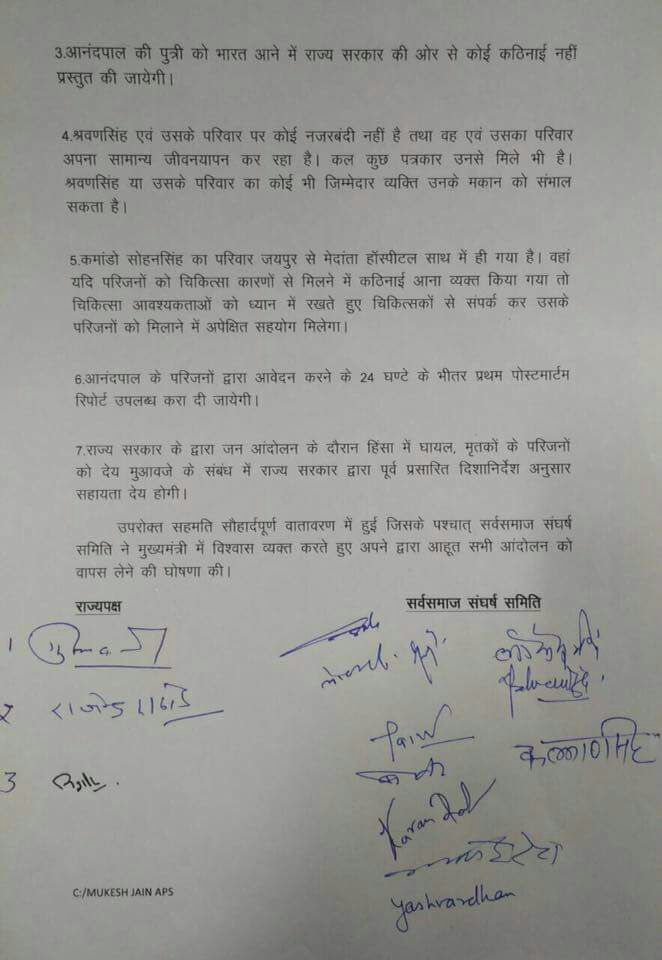 3.आनंदपाल की पुत्री को भारत आने में राज्य सरकार की ओर से कोई कठिनाई नहीं
प्रस्तुत की जायेगी।
4.श्रवणसिंह एवं उसके परिवार पर कोई नजरबंदी नहीं है तथा वह एवं उसका परिवार
अपना सामान्य जीवनयापन कर रहा है। कल कुछ पत्रकार उनसे मिले भी है।
श्रवणसिंह या उसके परिवार का कोई भी जिम्मेदार व्यक्ति उनके मकान को संभाल
सकता है।
5.कमांडो सोहनसिंह का परिवार जयपुर से मेदांता हॉस्पीटल साथ में ही गया है। वहां
यदि परिजनों को चिकित्सा कारणों से मिलने में कठिनाई आना व्यक्त किया गया तो
चिकित्सा आवश्यकताओं को ध्यान में रखते हुए चिकित्सकों से संपर्क कर उसके
परिजनों को मिलाने में अपेक्षित सहयोग मिलेगा।
6.आनंदपाल के परिजनों द्वारा आवेदन करने के 24 घण्टे के भीतर प्रथम पोस्टमार्टम
रिपोर्ट उपलब्ध करा दी जायेगी।
7.राज्य सरकार के द्वारा जन आंदोलन के दौरान हिंसा में घायल, मृतकों के परिजनों
को देय मुआवजे के संबंध में राज्य सरकार द्वारा पूर्व प्रसारित दिशानिर्देश अनुसार
सहायता देय होगी।
उपरोक्त सहमति सौहार्दपूर्ण वातावरण में हुई जिसके पश्चात् सर्वसमाज संघर्ष
समिति ने मुख्यमंत्री में विश्वास व्यक्त करते हुए अपने द्वारा आहूत सभी आंदोलन को
वापस लेने की घोषणा की।
राज्यपक्ष सर्वसमाज संघर्ष समिति
1
2 राजेन्द्र राठौड़
3
कल्याण सिंह
Yashvardhan
C:/MUKESH JAIN APS